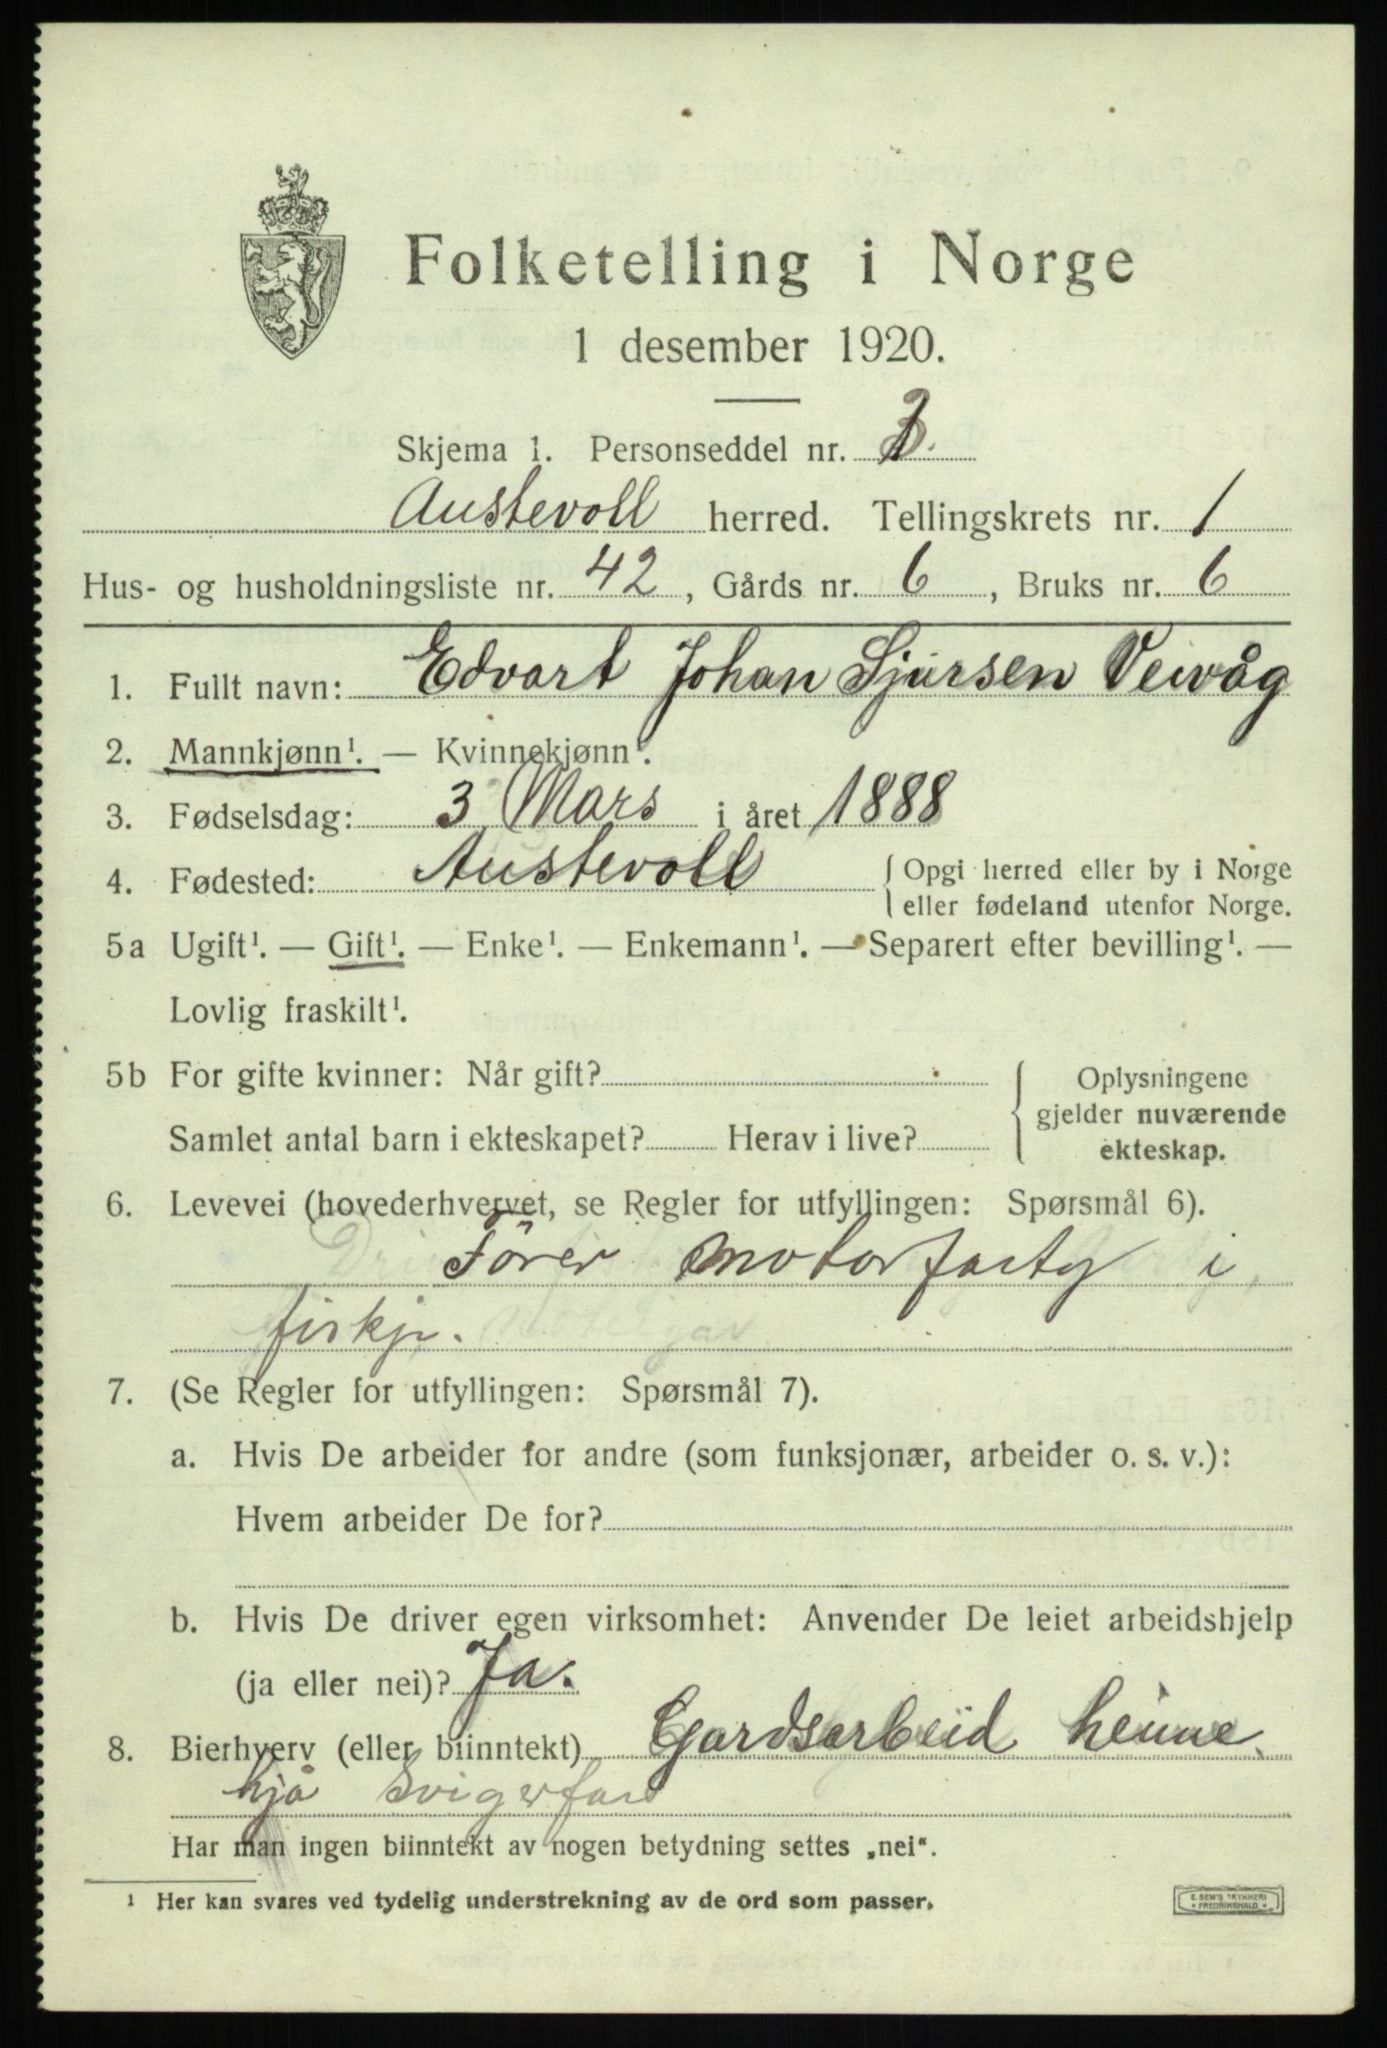 Folketelling i Norge
1 desember 1920.
Skjema 1. Personseddel nr. 3.
Austevoll herred. Tellingskrets nr. 1
Hus- og husholdningsliste nr. 42, Gårds nr. 6, Bruks nr. 6
1. Fullt navn: Edvart Johan Sjursen Veivåg
2. Mannkjønn¹. — Kvinnekjønn¹.
3. Fødselsdag: 3 Mars i året 1888
4. Fødested: Austevoll { Opgi herred eller by i Norge
eller fødeland utenfor Norge.
5a Ugift¹. — Gift¹. — Enke¹. — Enkemann¹. — Separert efter bevilling¹. —
Lovlig fraskilt¹.
5b For gifte kvinner: Når gift?
Samlet antal barn i ekteskapet? Herav i live?
{ Oplysningene
gjelder nuværende
ekteskap.
6. Levevei (hovederhvervet, se Regler for utfyllingen: Spørsmål 6).
Fører motorfarty i
fiskje.
7. (Se Regler for utfyllingen: Spørsmål 7).
a. Hvis De arbeider for andre (som funksjonær, arbeider o. s. v.):
Hvem arbeider De for?
b. Hvis De driver egen virksomhet: Anvender De leiet arbeidshjelp
(ja eller nei)? Ja.
8. Bierhverv (eller biinntekt) Gardsarbeid heime
hjå Svigerfar
Har man ingen biinntekt av nogen betydning settes „nei“.
¹ Her kan svares ved tydelig understrekning av de ord som passer.
E. SEM'S TRYKKERI
* FREDRIKSHALD *